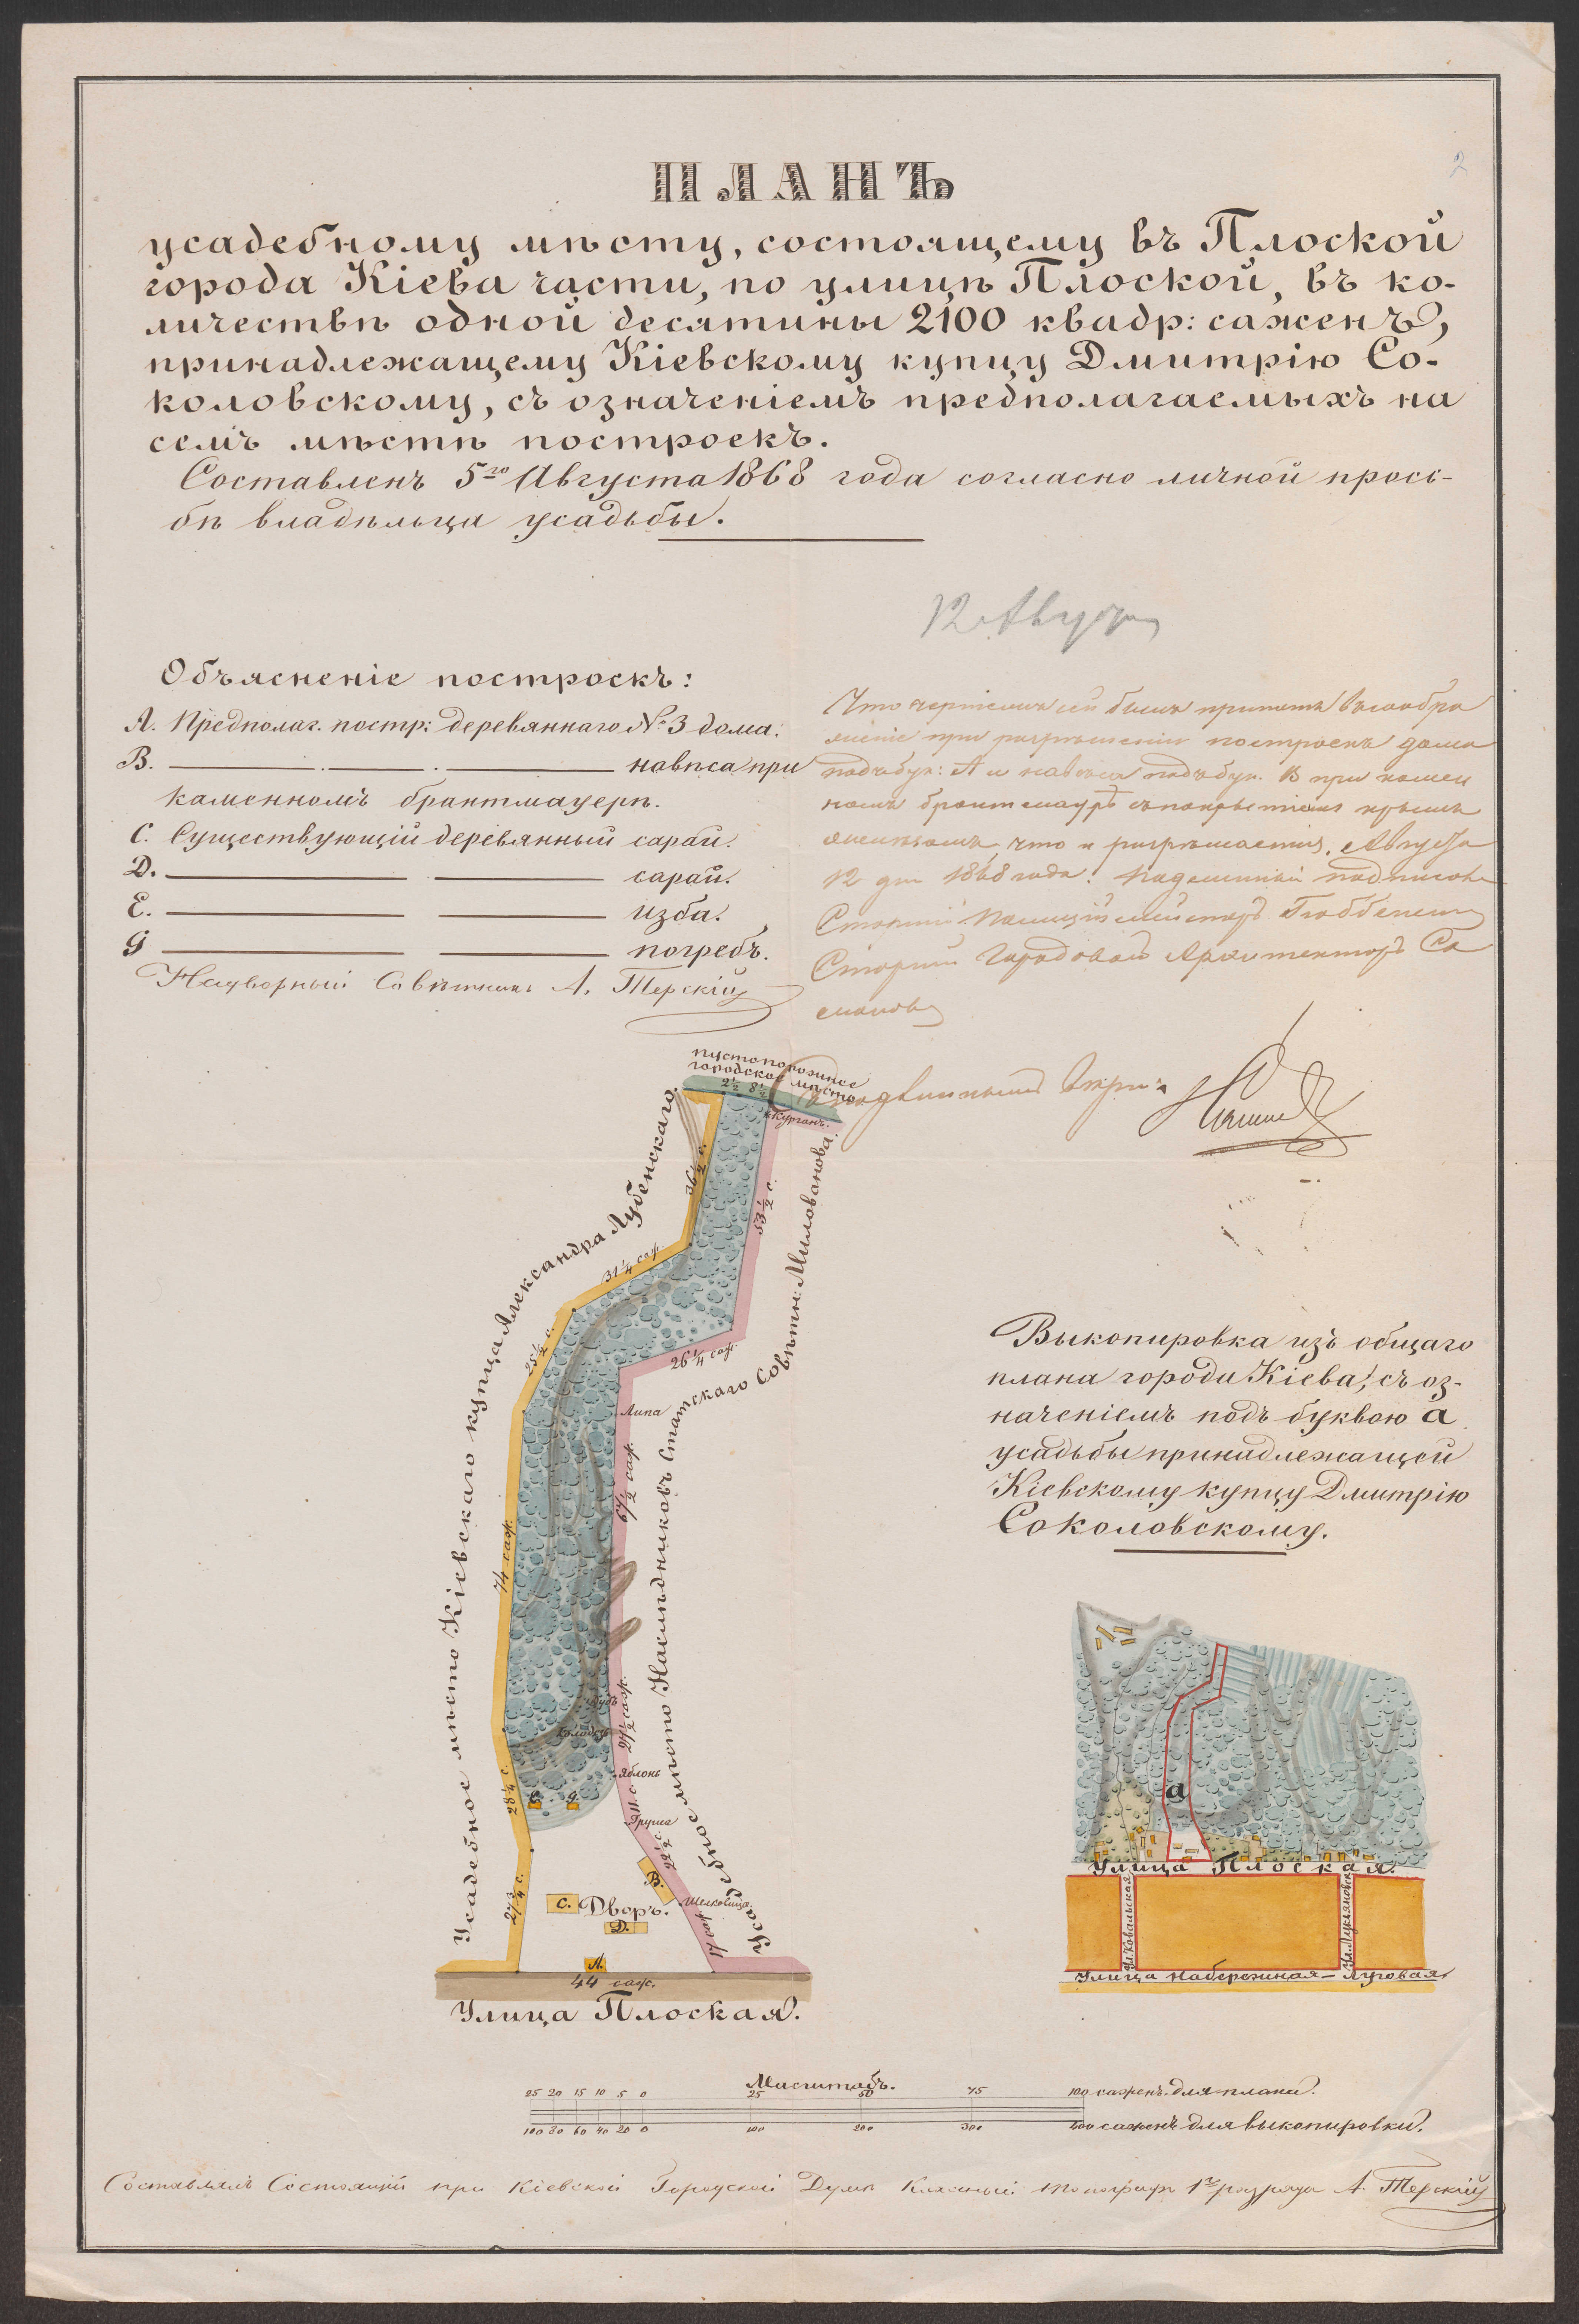 2
ПЛАНЪ
усадебному мѣсту, состоящему въ Плоской
города Кіева части, по улицѣ Плоской, въ ко-
личествѣ одной десятины 2100 квадр: саженъ,
принадлежащему Кіевскому купцу Дмитрію Со-
коловскому, съ означеніемъ предполагаемыхъ на
семъ мѣстѣ построекъ.
Составленъ 5го Августа 1868 года согласно личной прось-
бѣ владѣльца усадьбы.
12 Августа
Объясненіе построекъ:
А. Предполаг. постр: деревяннаго № 3 дома.
В. навѣса при
каменномъ брантмауерѣ.
С. Существующій деревянный сарай.
D. сарай.
Е. изба.
G погребъ.
Надворный Совѣтникъ А. Терскій
Что чертежъ сей былъ принятъ въ сообра
женіе при разрѣшеніи построекъ дома
подъ бук: А и навѣса подъ бук. В при камен
номъ брантмаурѣ съ покрытіемъ крышъ
желѣзомъ, что и разрѣшается. Августа
12 дня 1868 года. Надлежащій подписали
Старшій Полицiймейстеръ
Старшій Городовой Архитекторъ
пустопорожнее
городское мѣсто
2½ 8½
Курганъ.
36½ с.
53½ с.
31¼ саж.
26¼ саж.
25½ с.
Липа
67½ саж.
74 саж.
Дубъ
Колодезь
27½ саж.
Яблонь
28¼ с.
Е. G.
11 с.
Груша
22½ с.
В.
Шелковица
27¾ с.
С. Дворъ.
D.
17 саж.
А.
44 саж.
Улица Плоская.
Усадебное мѣсто Кіевскаго купца Александра Лубенскаго.
Усадебное мѣсто Наслѣдниковъ Статскаго Совѣтн: Милованова.
Выкопировка изъ общаго
плана города Кіева, съ оз-
наченіемъ подъ буквою а
усадьбы принадлежащей
Кіевскому купцу Дмитрію
Соколовскому.
а
Улица Плоская.
Ул. Ковальская
Ул. Лукьяновск
Улица Набережная-Луговая
Масштабъ.
25 20 15 10 5 0 25 50 75 100 саженъ для плана.
100 80 60 40 20 0 100 200 300 400 саженъ для выкопировки.
Составлялъ Состоящій при Кіевской Городской Думѣ Классный топографъ 1го разряда А. Терскій